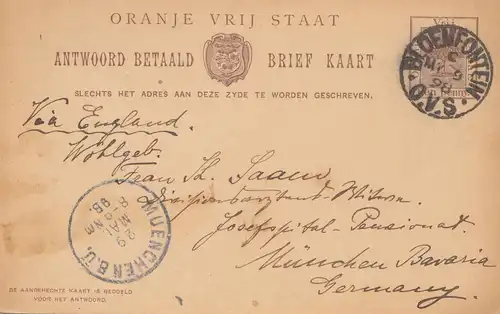 ORANJE VRIJ STAAT
ANTWOORD BETAALD BRIEF KAART
SLECHTS HET ADRES AAN DEZE ZYDE TE WORDEN GESCHREVEN.
BLOEMFONTEIN
O.V.S.
Via England.
Wohlgeb.
Frau Th. Saam
Divisionsarztens-Witwe
Josefspital-Pensionat.
München Bavaria
Germany.
MUENCHEN B.Ü.
29
MAI
8-9 Nm
95
DE AANGEHECHTE KAART IS BEDOELD
VOOR HET ANTWOORD.